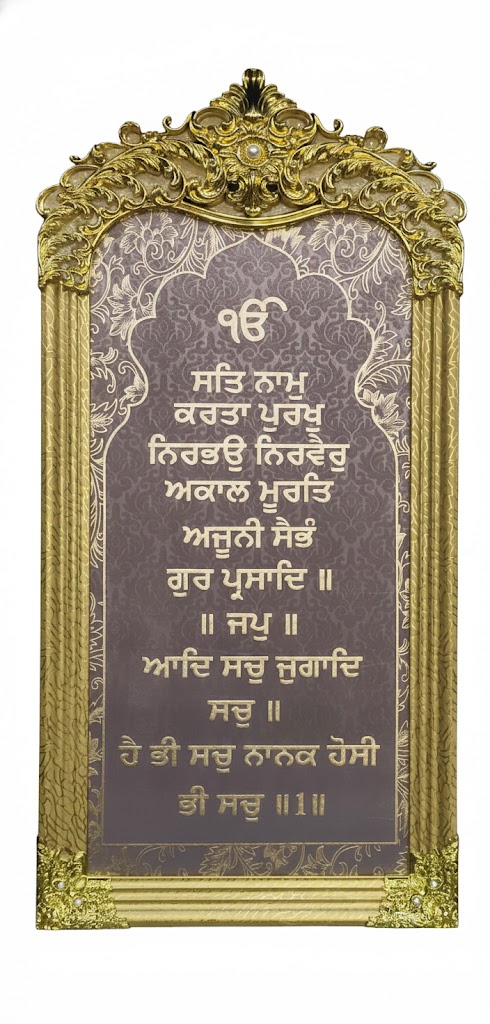 ੴ
ਸਤਿ ਨਾਮੁ
ਕਰਤਾ ਪੁਰਖੁ
ਨਿਰਭਉ ਨਿਰਵੈਰੁ
ਅਕਾਲ ਮੂਰਤਿ
ਅਜੂਨੀ ਸੈਭੰ
ਗੁਰ ਪ੍ਰਸਾਦਿ ॥
॥ ਜਪੁ ॥
ਆਦਿ ਸਚੁ ਜੁਗਾਦਿ
ਸਚੁ ॥
ਹੈ ਭੀ ਸਚੁ ਨਾਨਕ ਹੋਸੀ
ਭੀ ਸਚੁ ॥1॥